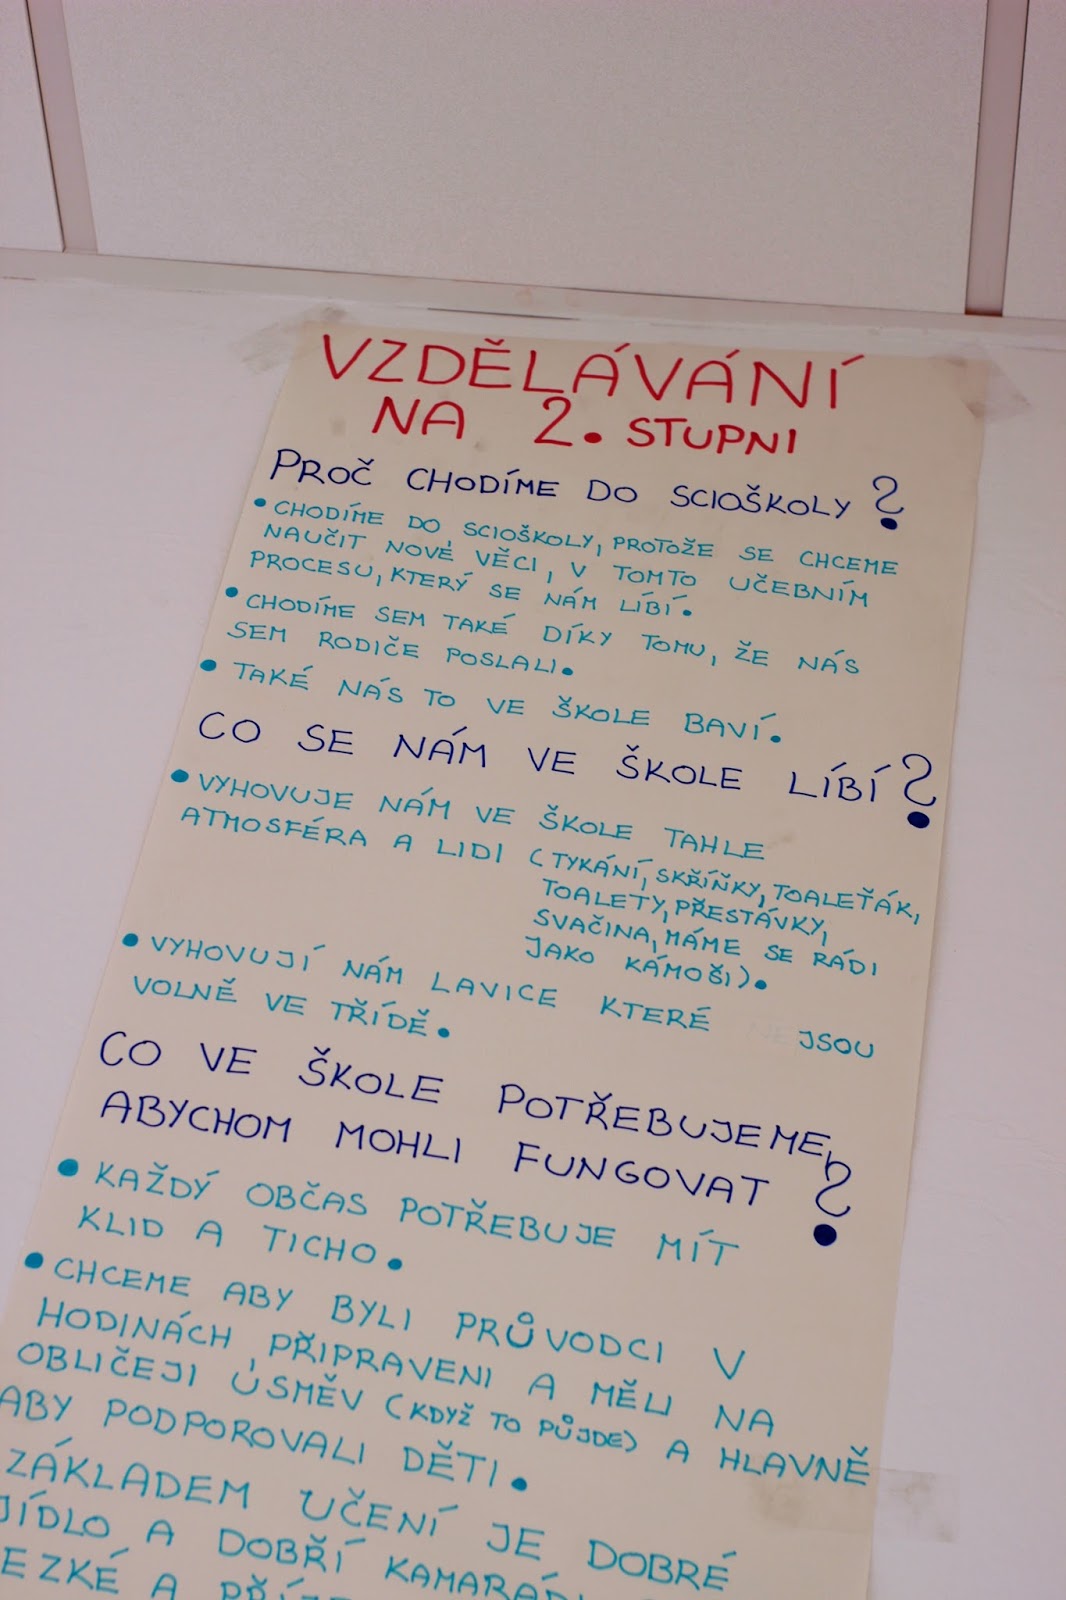 VZDĚLÁVÁNÍ
NA 2. STUPNI
PROČ CHODÍME DO SCIOŠKOLY?
• CHODÍME DO SCIOŠKOLY, PROTOŽE SE CHCEME
NAUČIT NOVÉ VĚCI, V TOMTO UČEBNÍM
PROCESU, KTERÝ SE NÁM LÍBÍ.
• CHODÍME SEM TAKÉ DÍKY TOMU, ŽE NÁS
SEM RODIČE POSLALI.
• TAKÉ NÁS TO VE ŠKOLE BAVÍ.
CO SE NÁM VE ŠKOLE LÍBÍ?
• VYHOVUJE NÁM VE ŠKOLE TAHLE
ATMOSFÉRA A LIDI (TYKÁNÍ, SKŘÍŇKY, TOALEŤÁK,
TOALETY, PŘESTÁVKY,
SVAČINA, MÁME SE RÁDI
JAKO KÁMOŠI).
• VYHOVUJÍ NÁM LAVICE KTERÉ JSOU
VOLNĚ VE TŘÍDĚ.
CO VE ŠKOLE POTŘEBUJEME,
ABYCHOM MOHLI FUNGOVAT?
• KAŽDÝ OBČAS POTŘEBUJE MÍT
KLID A TICHO.
• CHCEME ABY BYLI PRŮVODCI V
HODINÁCH, PŘIPRAVENI A MĚLI NA
OBLIČEJI ÚSMĚV (KDYŽ TO PŮJDE) A HLAVNĚ
ABY PODPOROVALI DĚTI.
ZÁKLADEM UČENÍ JE DOBRÉ
JÍDLO A DOBŘÍ
A